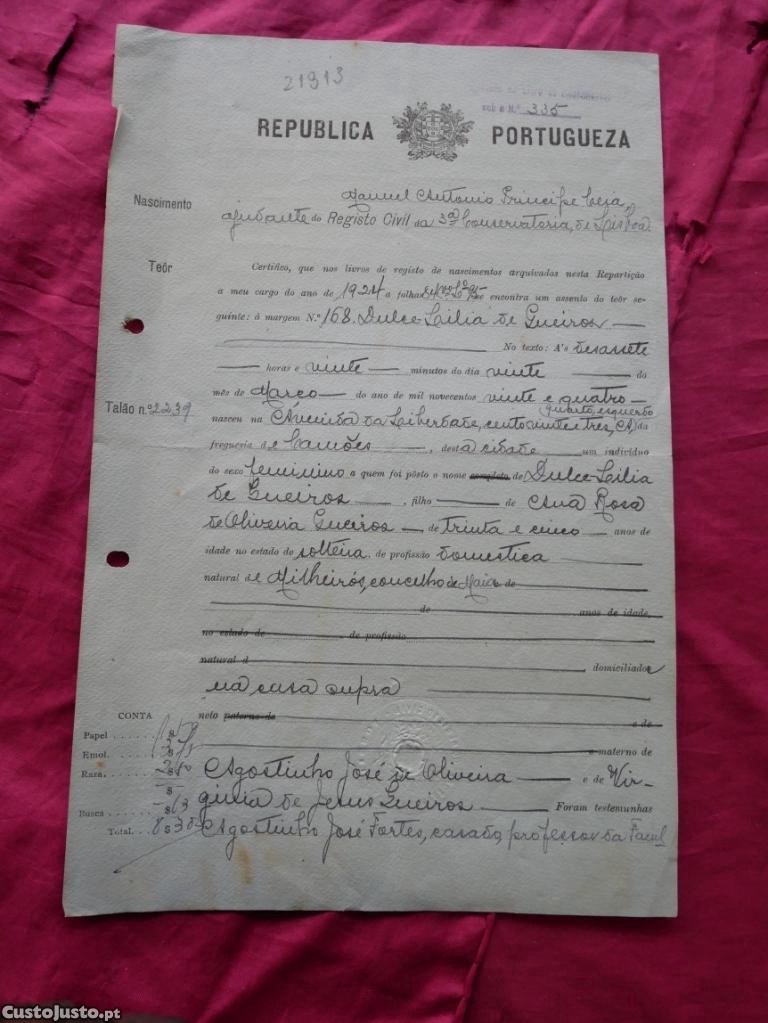 21913
sob o N.º 335
REPUBLICA PORTUGUEZA
Nascimento
Manuel Antonio Principe Ceia,
ajudante do Registo Civil da 3ª Conservatoria, de Lisboa
Teôr
Certifico, que nos livros de registo de nascimentos arquivados nesta Repartição
a meu cargo do ano de 1924 a folhas se encontra um assento do teôr se-
guinte: á margem N.º 168. Dulce Lilia de Queiros
No texto: A's desassete
horas e vinte minutos do dia vinte do
mês de Março do ano de mil novecentos vinte e quatro
Talão n.º 2239
quarto, esquerdo
nasceu na Avenida da Liberdade, cento vinte e tres, da
freguezia de Camões, desta cidade um individuo
do sexo feminino a quem foi pôsto o nome completo de Dulce Lilia
de Queiros, filho de Ana Rosa
de Oliveira Queiros de trinta e cinco anos de
idade no estado de solteira de profissão domestica
natural de Milheirós, concelho de Maia de
de anos de idade
no estado de , de profissão
natural d domiciliados
na casa supra
CONTA
neto paterno de e de
Papel
Emol.
e materno de
Raza.
Agostinho José de Oliveira e de Vir-
ginia de Jesus Queiros Foram testemunhas
Busca
Total. 8$30
Agostinho José Fortes, casado, professor da Facul
CustoJusto.pt